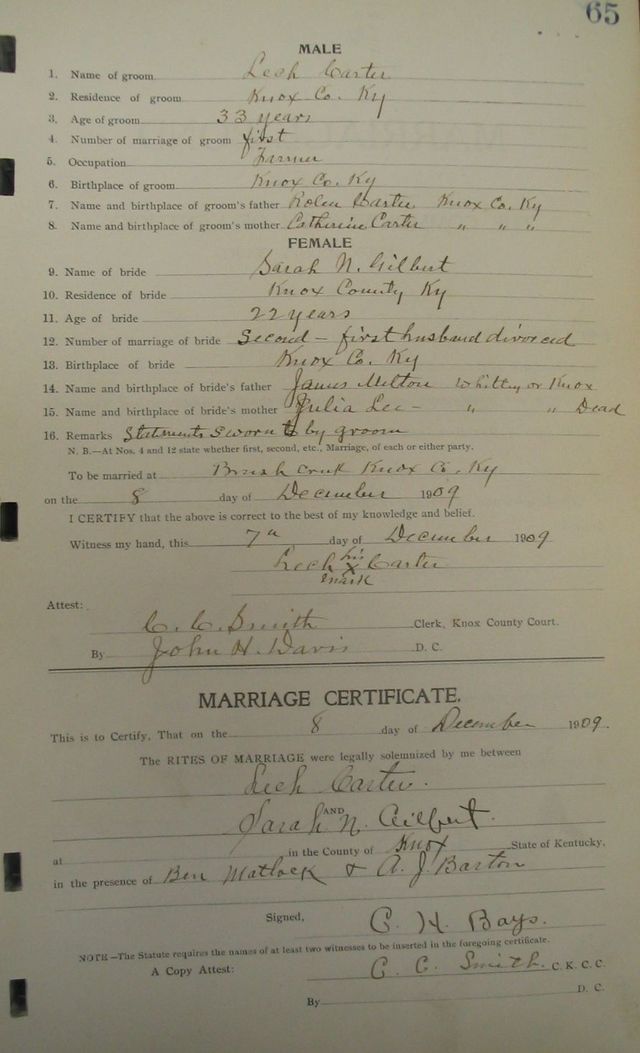 65
MALE
1. Name of groom Leeh Carter
2. Residence of groom Knox Co. Ky
3. Age of groom 33 years
4. Number of marriage of groom first
5. Occupation Farmer
6. Birthplace of groom Knox Co. Ky
7. Name and birthplace of groom's father Carter Knox Co. Ky
8. Name and birthplace of groom's mother Catherine Carter " " "
FEMALE
9. Name of bride Sarah N. Gilbert
10. Residence of bride Knox County Ky
11. Age of bride 22 years
12. Number of marriage of bride Second - first husband divorced
13. Birthplace of bride Knox Co. Ky
14. Name and birthplace of bride's father James Milton Whitley or Knox
15. Name and birthplace of bride's mother Julia Lee - " " Dead
16. Remarks Statements sworn to by groom
N. B.—At Nos. 4 and 12 state whether first, second, etc., Marriage, of each or either party.
To be married at Brush Creek Knox Co. Ky
on the 8 day of December 1909
I CERTIFY that the above is correct to the best of my knowledge and belief.
Witness my hand, this 7th day of December 1909
Leeh his x mark Carter
Attest:
C. C. Smith Clerk, Knox County Court.
By John H. Davis D. C.
MARRIAGE CERTIFICATE.
This is to Certify, That on the 8 day of December 1909.
The RITES OF MARRIAGE were legally solemnized by me between
Leeh Carter.
AND
Sarah N. Gilbert.
at in the County of Knox State of Kentucky,
in the presence of Ben Matlock & A. J. Barton
Signed, C. H. Bays.
NOTE—The Statute requires the names of at least two witnesses to be inserted in the foregoing certificate.
A Copy Attest: C. C. Smith. C. K. C. C.
By D. C.